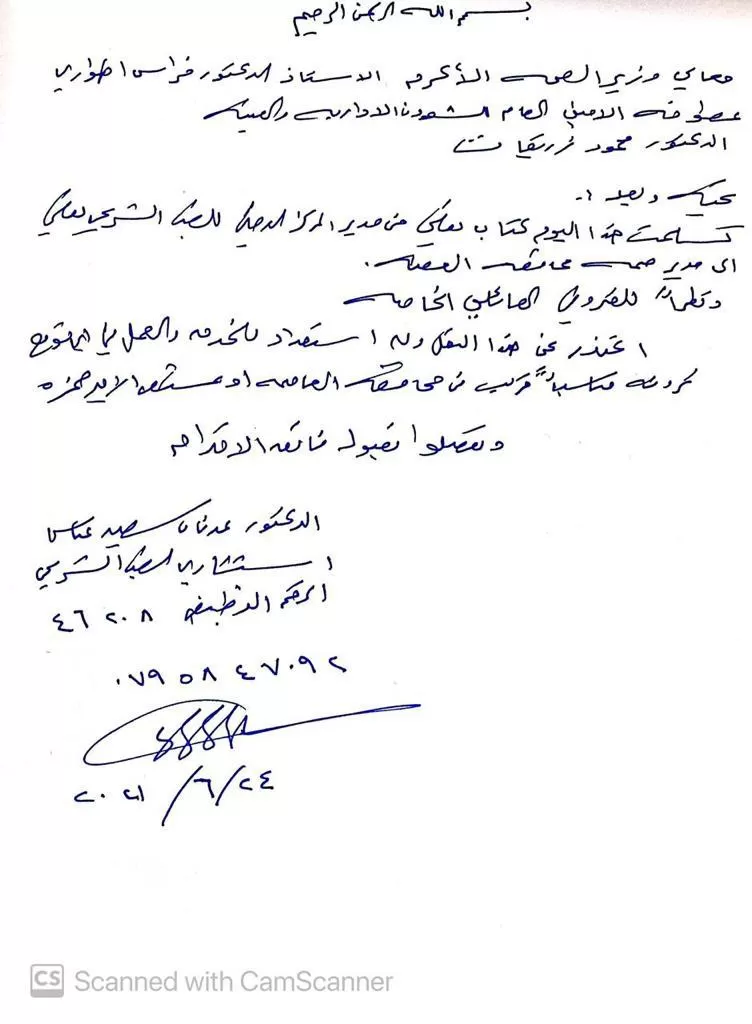 بسم الله الرحمن الرحيم
معالي وزير الصحة الأكرم الاستاذ الدكتور فراس الهواري
عطوفة الامين العام للشؤون الادارية والفنية
الدكتور محمود زريقات
تحية وبعد :-
تسلمت هذا اليوم كتاب نقلي من مدير المركز الوطني للطب الشرعي نقلي
الى مدير صحة محافظة العقبة.
ونظراً للظروف العائلية الخاصة
اعتذر عن هذا النقل ولي استعداد للخدمة والعمل في اي موقع
ترونه مناسباً قريب من محافظة العاصمة او مستشفى الامير حمزه
وتفضلوا بقبول فائق الاحترام
الدكتور عدنان سعيد عباس
استشاري الطب الشرعي
الرقم الوظيفي ٤٦٢٠٨
٠٧٩٥٨٤٧٠٩٢
٢٠٢١/٦/٢٤
CS Scanned with CamScanner